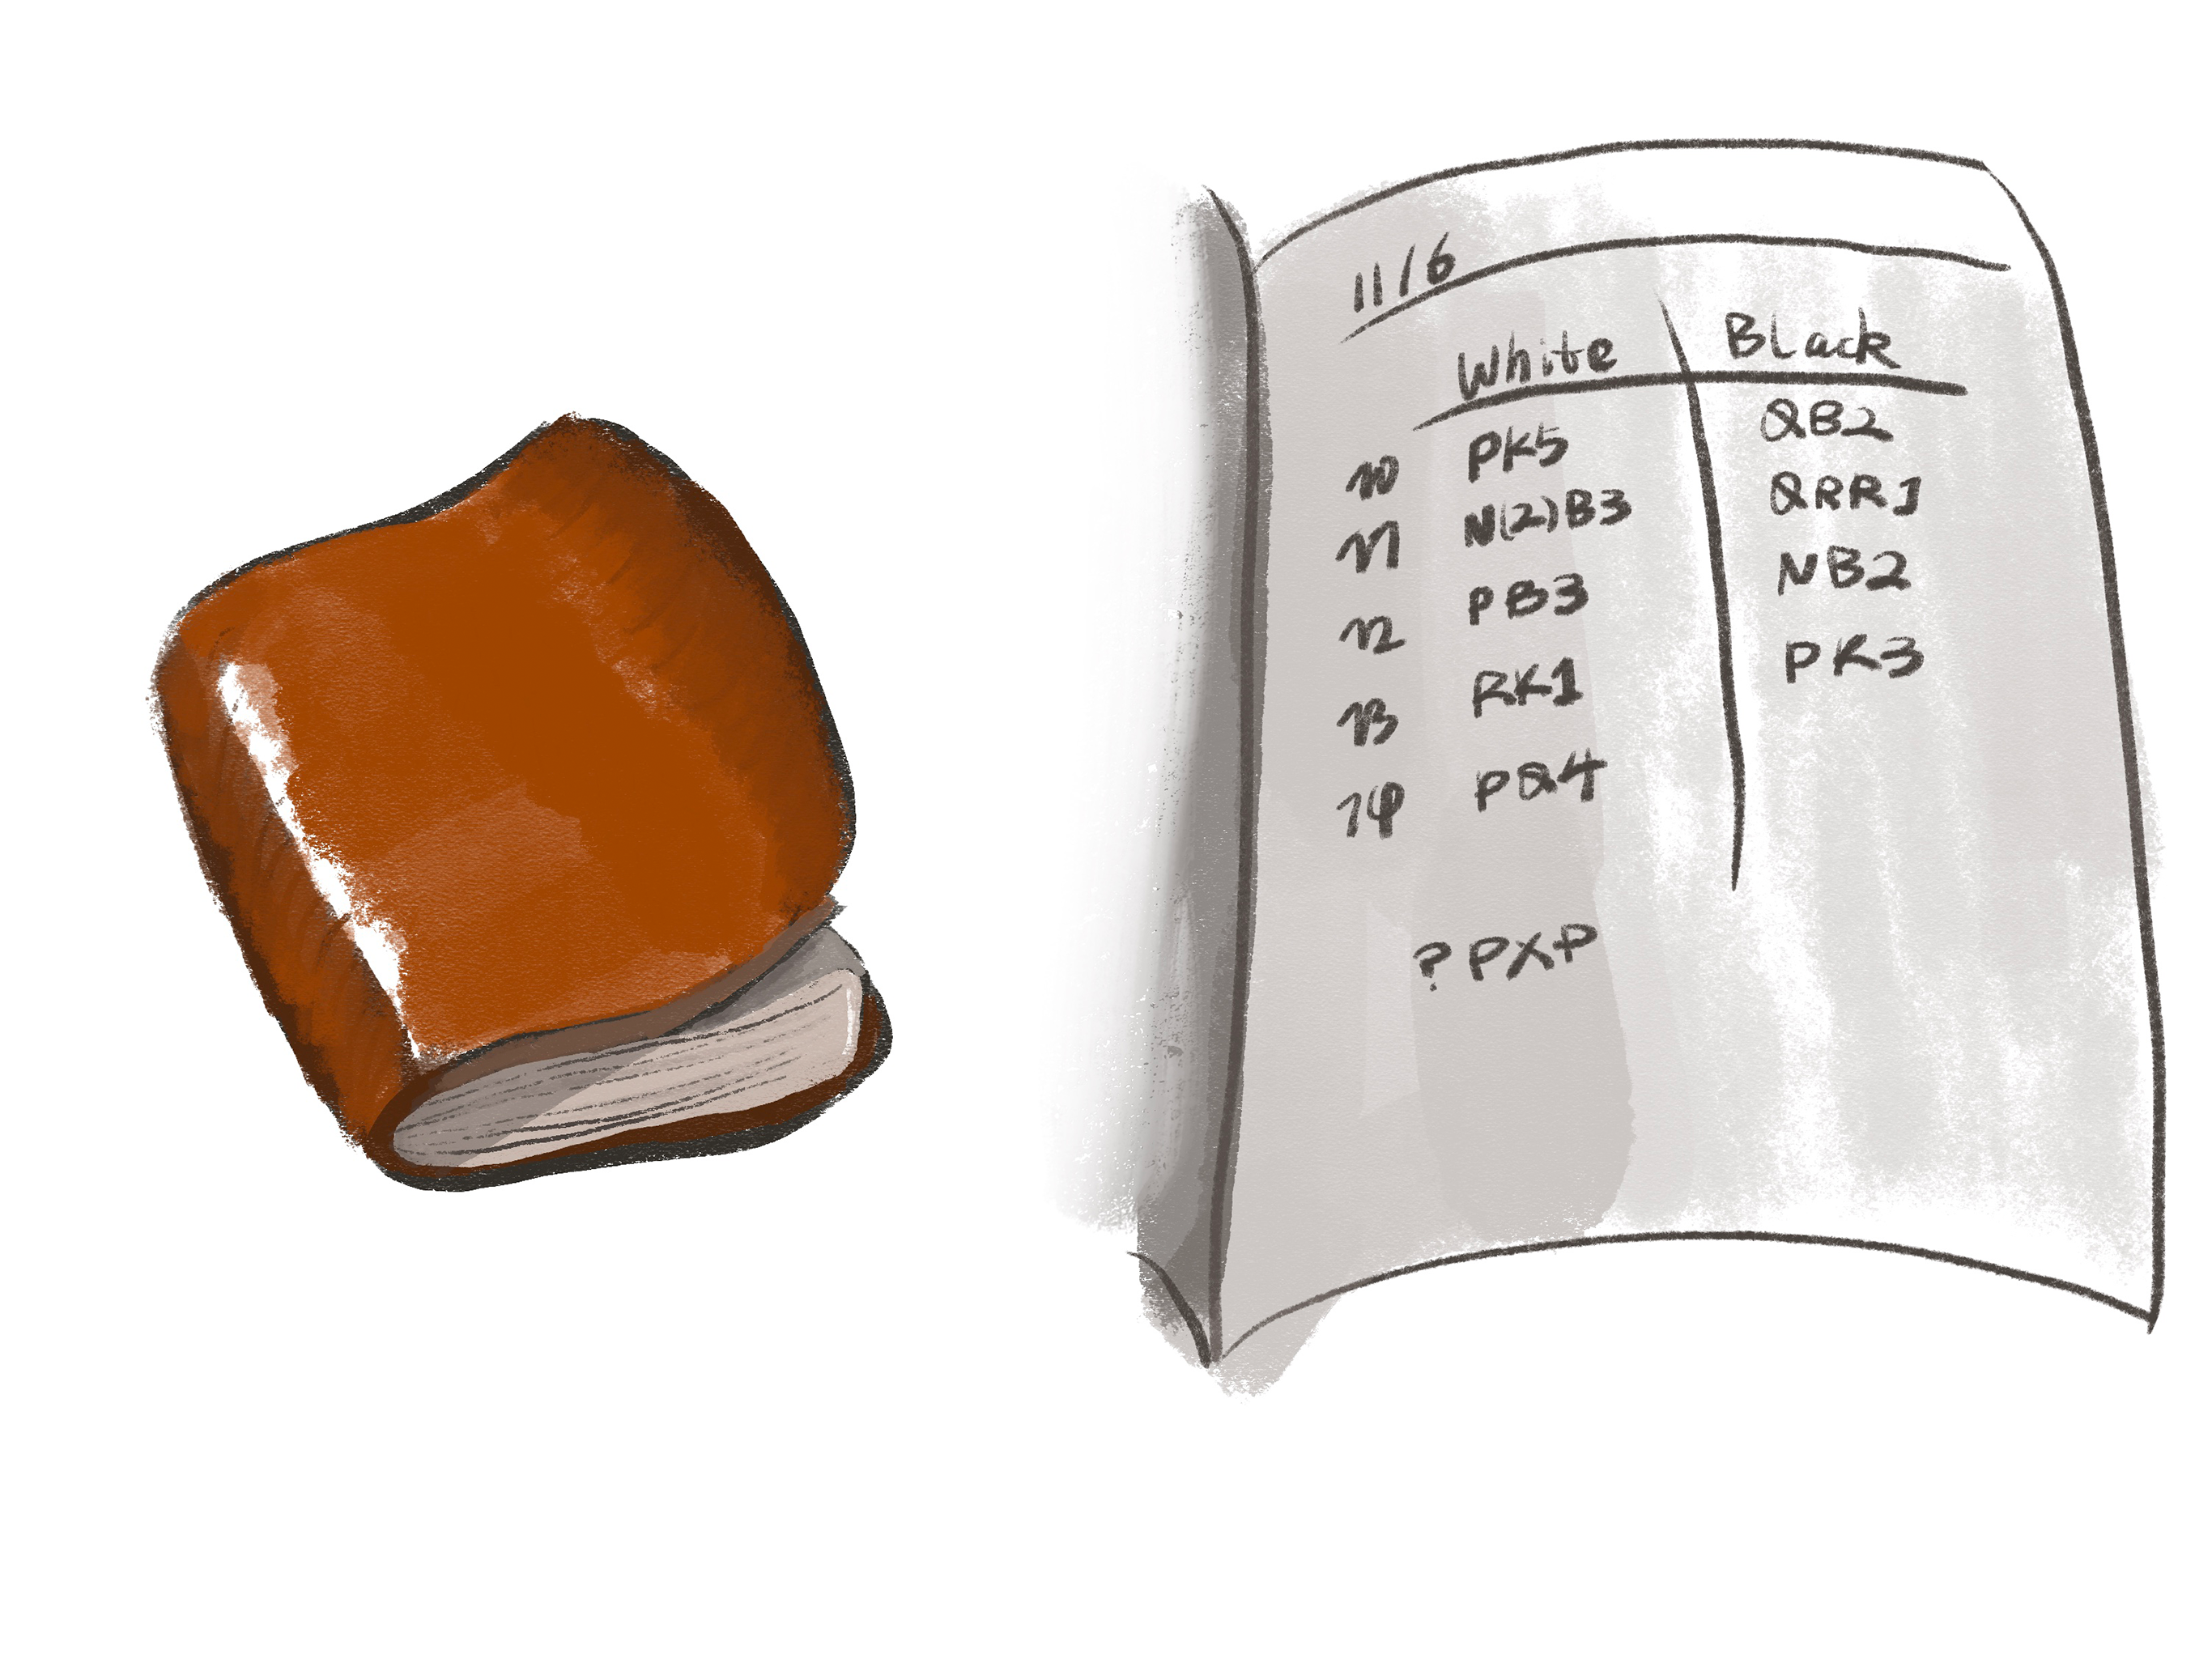 11/6
White Black
10 PK5 QB2
11 N(2)B3 QRR1
12 PB3 NB2
13 RK1 PK3
14 PQ4
? PXP